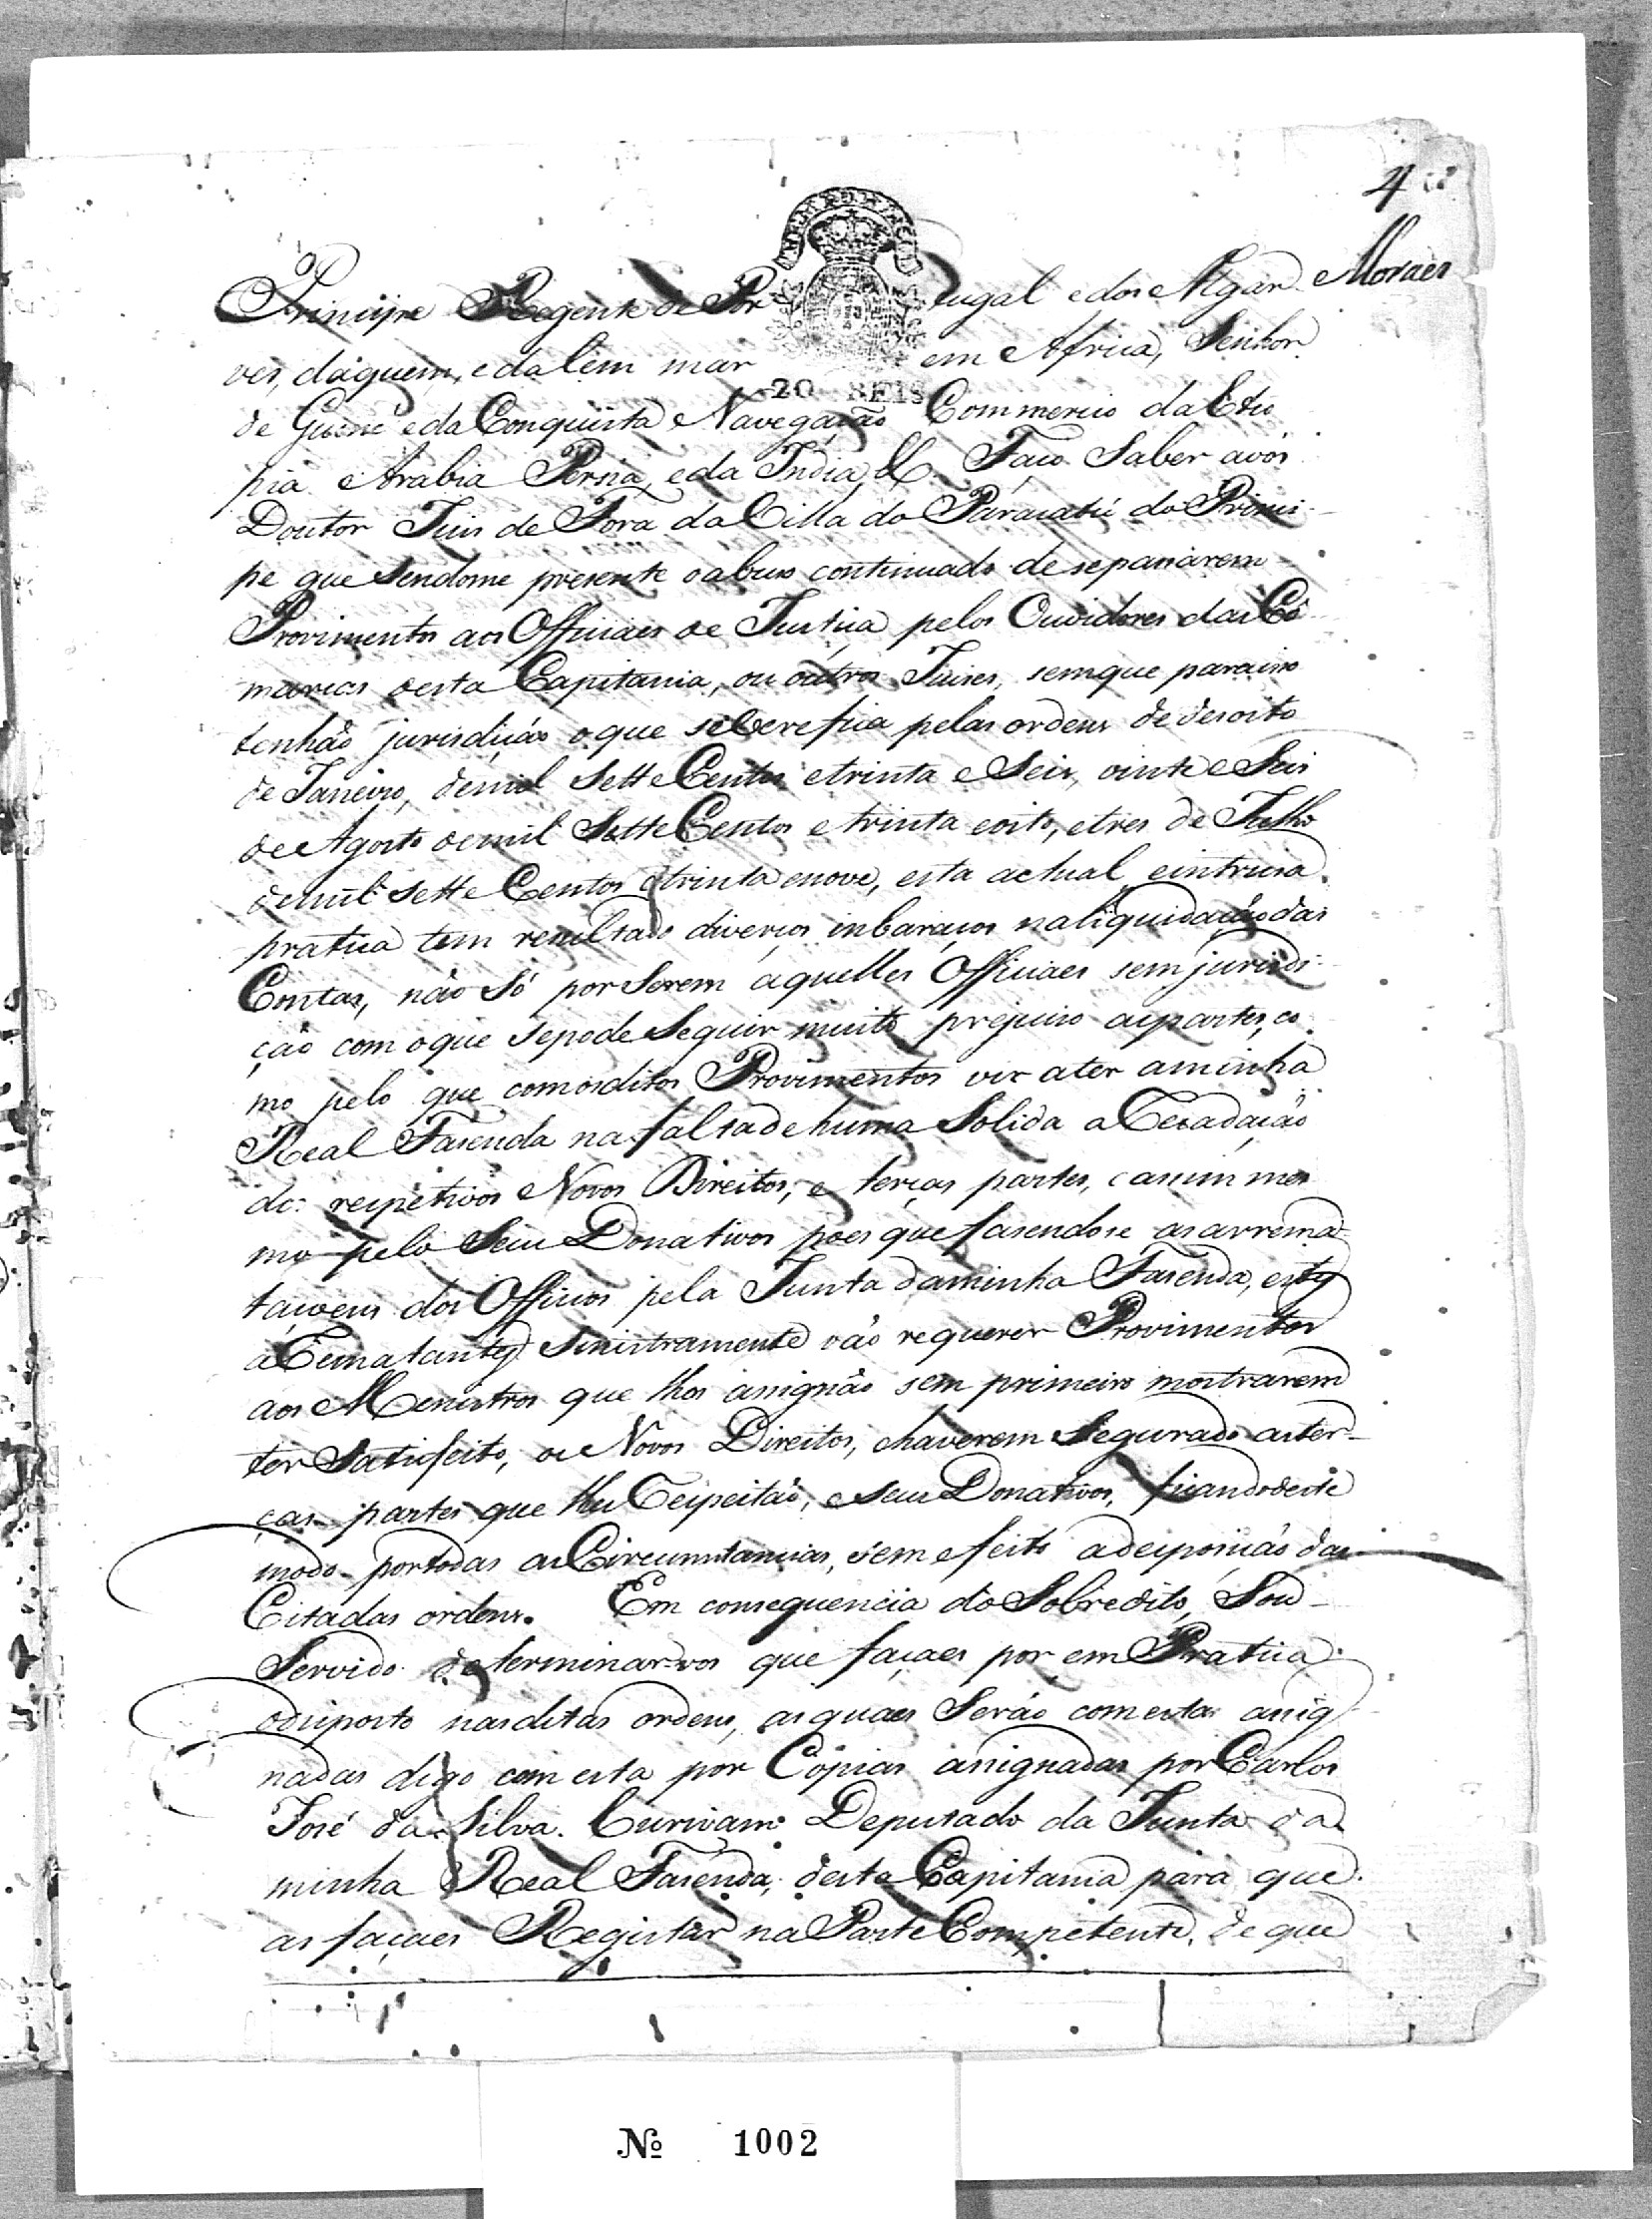 4
Moraes
Principe Regente de Por tugal e dos Algar
ves, daquem, e dalem mar em Africa, Senhor
20 REIS
de Guiné e da Conquista Navegação Commercio da Etio
pia Arabia Persia, e da India, &. Faço Saber avós
Doutor Juis de Fora da Villa do Paracatú do Princi-
pe que sendome presente o abuso continuado de sepassarem
Provimentos aos Officiaes de Justiça pelos Ouvidores das Co
marcas desta Capitania, ou outros Juises, semque paraisso
tenhão jurisdição oque seVerefica pelas ordens de desoito
de Janeiro, demil Sette Centos etrinta e Seis, vinte e Seis
de Agosto demil Sette Centos e trinta eoito, etres de Julho
demil Sette Centos etrinta enove, esta actual eintrusa
pratica tem resultado diversos inbaraços naliquidação das
Contas, não Só por Serem aquelles Officiaes sem jurisdi-
ção com oque sepode Seguir muito prejuiso aspartes, co
mo pelo que comosditos Provimentos vir ater aminha
Real Fasenda na falta de huma Solida aRecadação
dos respetivos Novos Direitos, e terças partes, e assim mes
mo pelo Seus Donativos poes que fasendose as arrema-
taçoens dos Officios pela Junta daminha Fasenda, estes
aRematantes Sinistramente vão requerer Provimentos
aos Menistros que lhos assignão sem primeiro mostrarem
ter Satisfeito, os Novos Direitos, ehaverem Segurado aster-
ças partes que lhes Respeitão, e seus Donativos, ficandodeste
modo portodas as Circunstancias, sem efeito adesposição das
Citadas ordens. Em consequencia do Sobredito, Sou
Servido determinar-vos que façaes por em Pratica
odisposto nasditas ordens, as quaes Serão comesta assig
nadas digo com esta por Copias assignadas por Carlos
José da Silva. Deputado da Junta da
minha Real Fasenda, desta Capitania para que
as façaes Registar na Parte Competente, de que
№ 1002